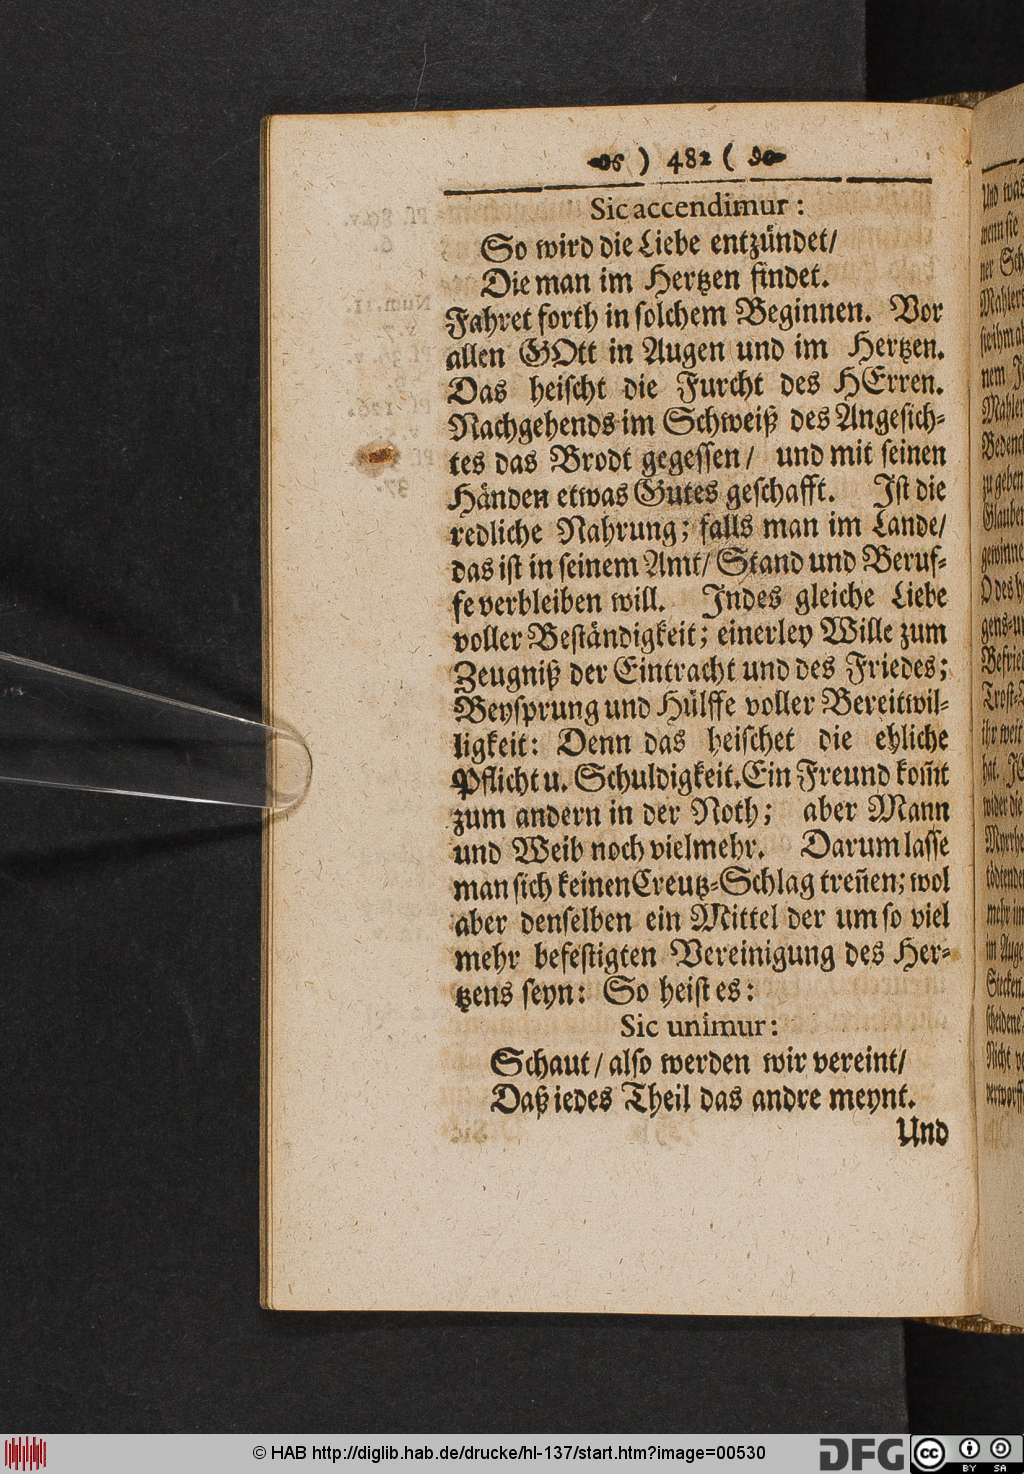 ) 482 (
Sic accendimur:
So wird die Liebe entzündet/
Die man im Hertzen findet.
Fahret forth in solchem Beginnen. Vor
allen GOtt in Augen und im Hertzen.
Das heischt die Furcht des HErren.
Nachgehends im Schweiß des Angesich-
tes das Brodt gegessen/ und mit seinen
Händen etwas Gutes geschafft. Ist die
redliche Nahrung; falls man im Lande/
das ist in seinem Amt/ Stand und Beruf-
fe verbleiben will. Indes gleiche Liebe
voller Beständigkeit; einerley Wille zum
Zeugniß der Eintracht und des Friedes;
Beysprung und Hülffe voller Bereitwil-
ligkeit: Denn das heischet die ehliche
Pflicht u. Schuldigkeit. Ein Freund kom̃t
zum andern in der Noth; aber Mann
und Weib noch vielmehr. Darum lasse
man sich keinen Creutz-Schlag treñen; wol
aber denselben ein Mittel der um so viel
mehr befestigten Vereinigung des Her-
tzens seyn: So heist es:
Sic unimur:
Schaut/ also werden wir vereint/
Daß iedes Theil das andre meynt.
Und
© HAB http://diglib.hab.de/drucke/hl-137/start.htm?image=00530
DFG
cc BY SA